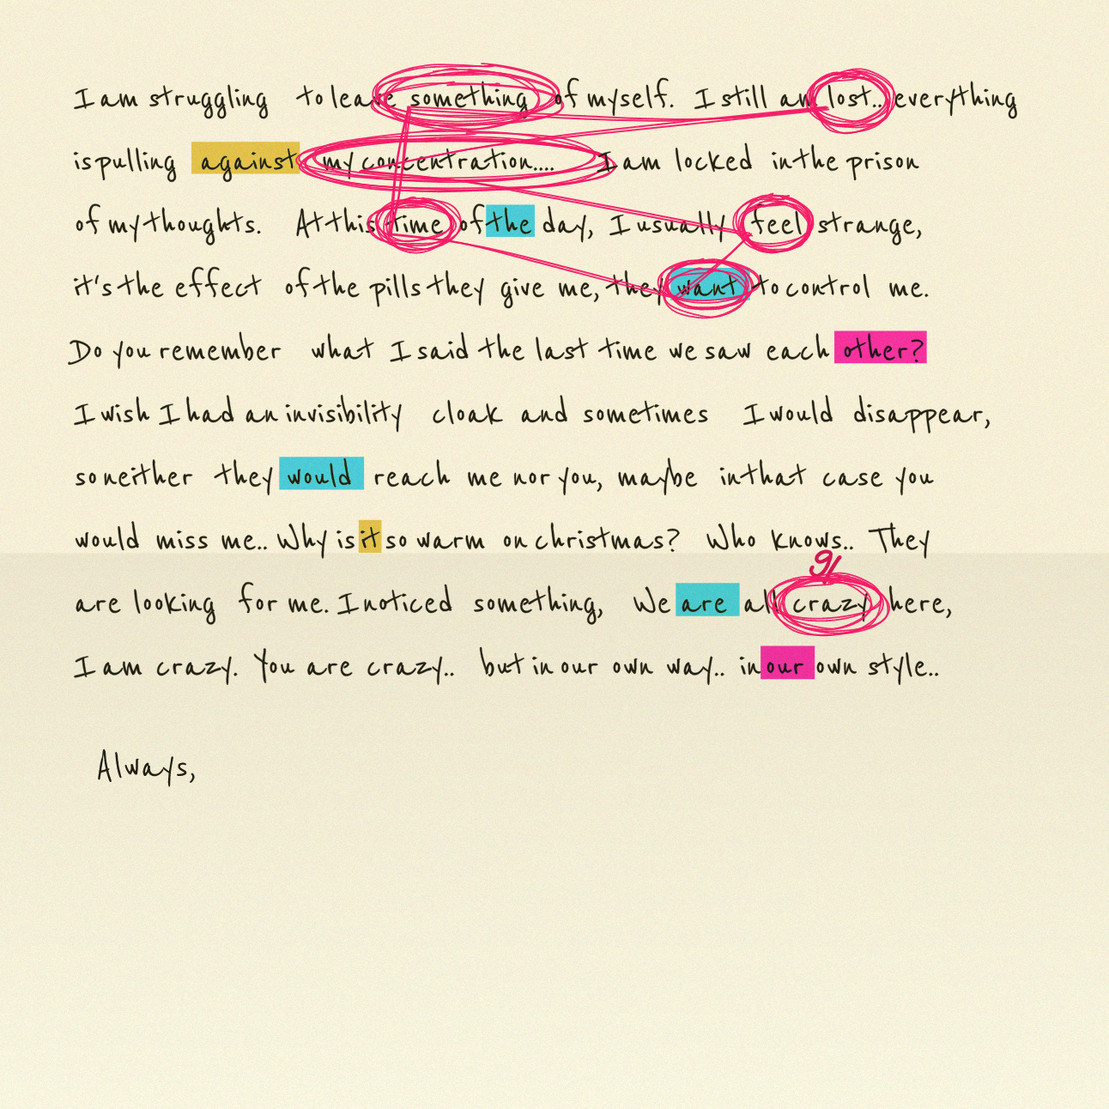 I am struggling to leave something of myself. I still am lost.. everything
is pulling against my concentration.... I am locked in the prison
of my thoughts. At this time of the day, I usually feel strange,
it's the effect of the pills they give me, they want to control me.
Do you remember what I said the last time we saw each other?
I wish I had an invisibility cloak and sometimes I would disappear,
so neither they would reach me nor you, maybe in that case you
would miss me.. Why is it so warm on christmas? Who knows.. They
are looking for me. I noticed something, We are all crazy here,
I am crazy. You are crazy.. but in our own way.. in our own style..
Always,